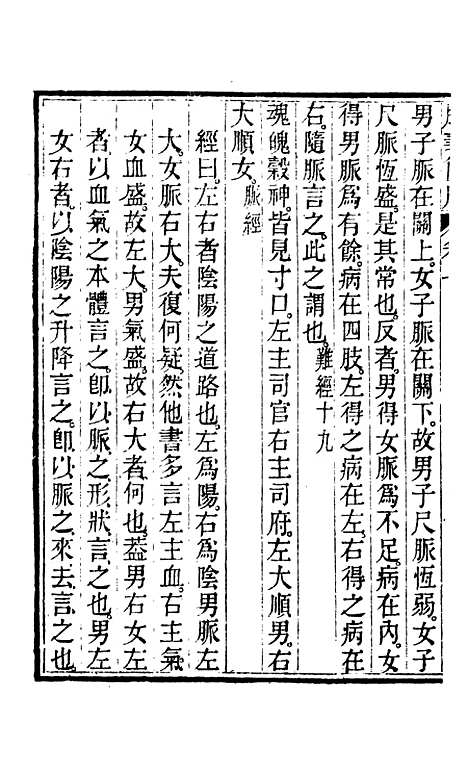 男子脈在關上。女子脈在關下。故男子尺脈恆弱。女子
尺脈恆盛。是其常也。反者。男得女脈爲不足。病在內。女
得男脈爲有餘。病在四肢。左得之病在左。右得之病在
右。隨脈言之。此之謂也。難經十九
魂魄穀神。皆見寸口。左主司官右主司府。左大順男。右
大順女。脈經
經曰。左右者陰陽之道路也。左爲陽。右爲陰男脈左
大。女脈右大。夫復何疑。然他書多言左主血。右主氣
女血盛。故左大。男氣盛。故右大者。何也。蓋男右女左
者以血氣之本體言之。卽以脈之形狀言之也。男左
女右者。以陰陽之升降言之。卽以脈之來去言之也